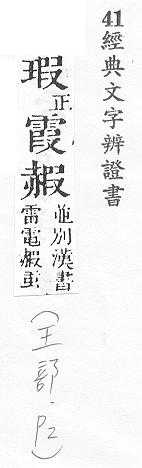 41
經典文字辨證書
瑕正霞赮並別漢書
雷電赮
(王部.P2)